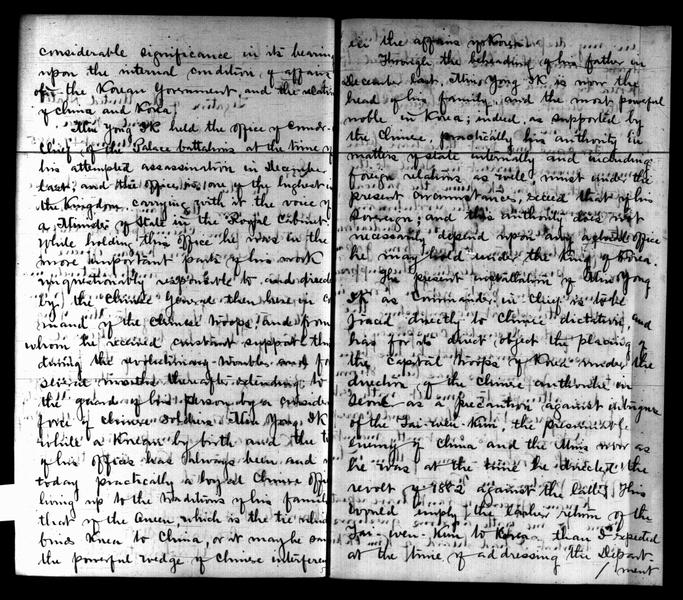 considerable significance in its bearing
upon the internal condition of affairs
of the Korean Government, and the relation
of China and Korea.
Min Yong Ik held the office of Comdr.
Chief of the Palace battalions at the time of
his attempted assassination in December
last; and this office is one of the highest in
the Kingdom, carrying with it the voice of
a Minister of State in the Royal Cabinet.
While holding this office he was in the
more important parts of his work
unquestionably responsible to and directed
by the Chinese General then here in
mand of the Chinese troops and from
whom he received constant support
during the revolutionary troubles and for
several months thereafter, extending to
the guard of his person by a considerable
force of Chinese soldiers. Min Yong Ik
while a Korean by birth and the
of his offices has always been and
today practically a loyal Chinese
living up to the traditions of his family
that of the Queen, which is the tie which
binds Korea to China, or it may be
the powerful wedge of Chinese interference
in the affairs of Korea.
Through the beheading of his father in
December last, Min Yong Ik is now the
head of his family, and the most powerful
noble in Korea; indeed, as supported by
the Chinese, practically his authority in
matters of state internally and including
foreign relations as well, must under the
present circumstances, exceed that of his
Sovereign; and this authority does not
necessarily depend upon any office
he may hold under the King of Korea.
The present installation of Min Yong
Ik as Commander in Chief is to be
traced directly to Chinese dictation, and
has for its direct object the placing of
the Capital troops of Korea under the
direction of the Chinese authorities in
Seoul as a precaution against intrigue
of the Tai-wen-Kun, the present
enemy of China and the Mins now as
he was at the time he directed the
revolt of 1882 against the latter. This
would imply the return of the
Tai-wen-Kun to Korea than I expected
at the time of addressing the Depart-
/ment